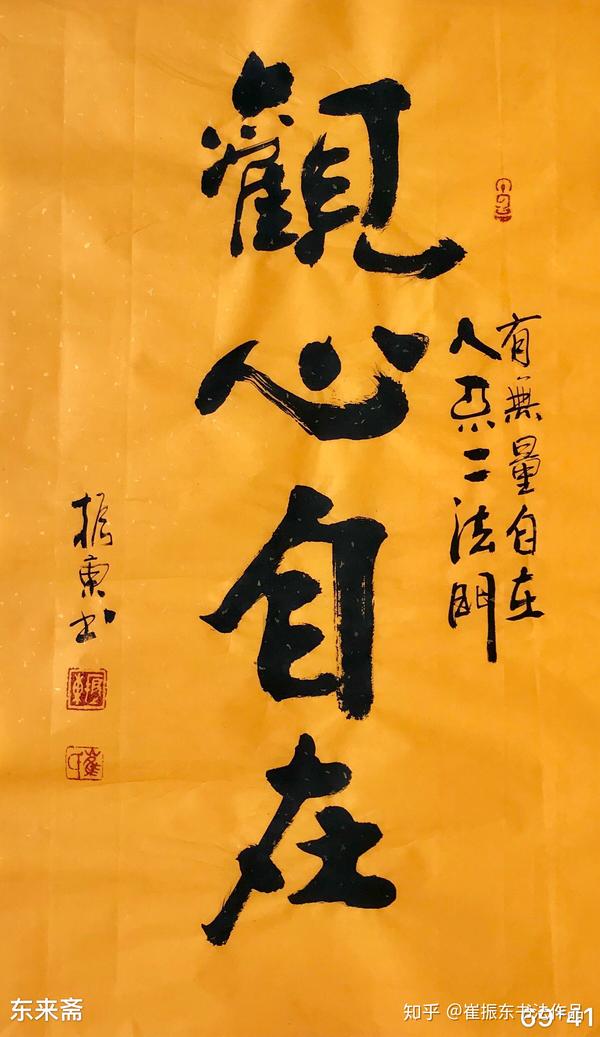 有無量自在
入不二法門
觀心自在
振東书
东来斋
知乎 @崔振东书法作品
69*41